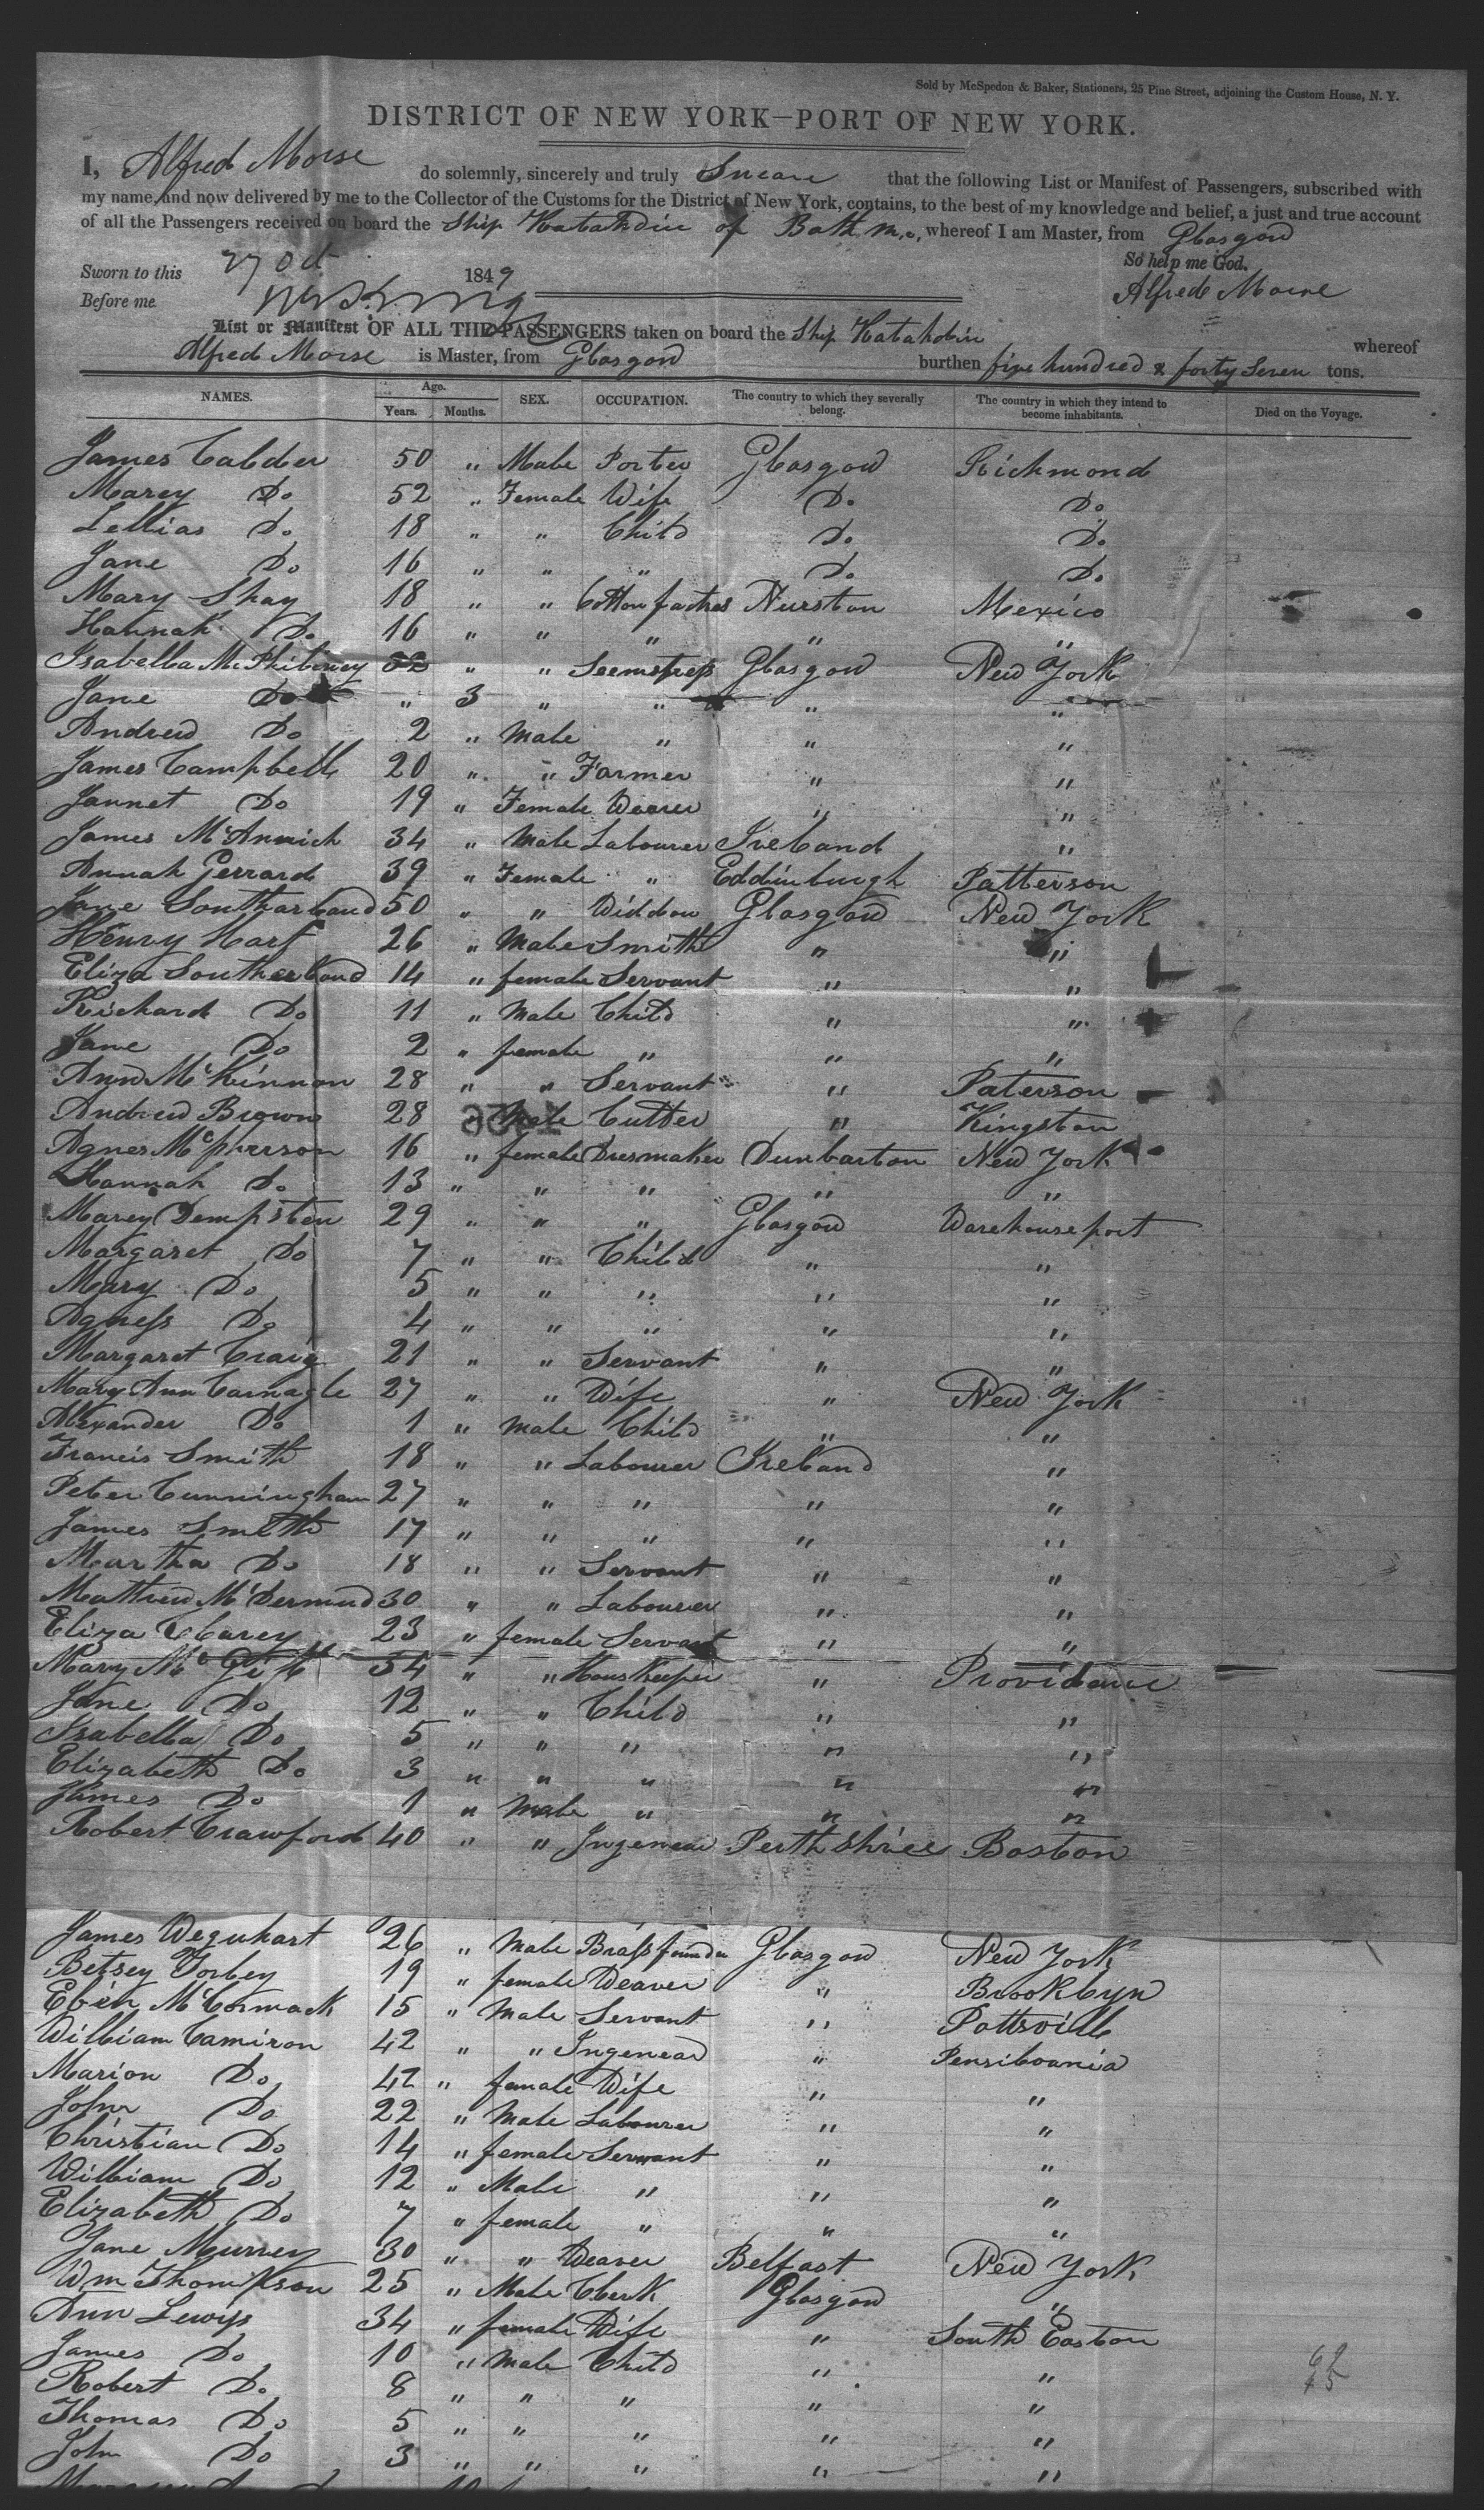 Sold by McSpedon & Baker, Stationers, 25 Pine Street, adjoining the Custom House, N. Y.
DISTRICT OF NEW YORK—PORT OF NEW YORK.
I, Alfred Morse do solemnly, sincerely and truly Swear that the following List or Manifest of Passengers, subscribed with
my name, and now delivered by me to the Collector of the Customs for the District of New York, contains, to the best of my knowledge and belief, a just and true account
of all the Passengers received on board the Ship Katahdin of Bath Me, whereof I am Master, from Glasgow
Sworn to this 27 Oct 1849 So help me God.
Before me Alfred Morse
List or Manifest OF ALL THE PASSENGERS taken on board the Ship Katahdin whereof
Alfred Morse is Master, from Glasgow burthen five hundred & forty Seven tons.
NAMES. Age. Years. Months. SEX. OCCUPATION. The country to which they severally belong. The country in which they intend to become inhabitants. Died on the Voyage.
James Calder 50 " Male Porter Glasgow Richmond
Marey Do 52 " Female Wife Do Do
Lellias Do 18 " " Child Do Do
Jane Do 16 " " " Do Do
Mary Shay 18 " " Cotton factres Nurston Mexico
Hannah Do 16 " " " " "
Isabella " " Seemstress Glasgow New York
Jane Do " 3 " " " "
Andrew Do 2 " Male " " "
James Campbell 20 " " Farmer " "
Jannet Do 19 " Female Weaver " "
James McAnnich 34 " Male Labourer Ireland "
Annah Gerrard 39 " Female " Eddinburgh Patterson
Jane Southerland 50 " " Widdow Glasgow New York
Henry Hart 26 " Male Smith " "
Eliza Southerland 14 " female Servant " "
Richard Do 11 " Male Child " "
Jane Do 2 " female " " "
Ann McKinnon 28 " " Servant " Paterson
Andrew Brown 28 Male Cutter " Kingston
Agnes Mcpherson 16 " female Dresmaker Dunbarton New York
Hannah Do 13 " " " " "
Marey Dempsten 29 " " " Glasgow Warehouseport
Margaret Do 7 " " Child " "
Mary Do 5 " " " " "
Agness Do 4 " " " " "
Margaret Craig 21 " " Servant " "
Mary Ann Carnagle 27 " " Wife " New York
Alexander Do 1 " Male Child " "
Francis Smith 18 " " Labourer Ireland "
Peter Cunningham 27 " " " " "
James Smith 17 " " " " "
Martha Do 18 " " Servant " "
Mathew McDermud 30 " " Labourer " "
Eliza Clarey 23 " female Servant " "
Mary 34 " " HousKeeper " Providence
Jane Do 12 " " Child " "
Isabella Do 5 " " " " "
Elizabeth Do 3 " " " " "
James Do 1 " Male " " "
Robert Crawford 40 " " Ingenear Perthshire Boston
James Wequhart 26 " Male Brassfounder Glasgow New York
Betsey Forbey 19 " female Weaver " Brooklyn
Eben McCormack 15 " Male Servant " Pottsville
William Camiron 42 " " Ingenear " Pensilvania
Marion Do 42 " female Wife " "
John Do 22 " Male Labourer " "
Christian Do 14 " female Servant " "
William Do 12 " Male " " "
Elizabeth Do 7 " female " " "
Jane Murrey 30 " " Weaver Belfast New York
Wm Thompson 25 " Male Clerk Glasgow "
Ann Lewiss 34 " female Wife " South Easton
James Do 10 " Male Child " "
Robert Do 8 " " " " "
Thomas Do 5 " " " " "
John Do 3 " " " " "